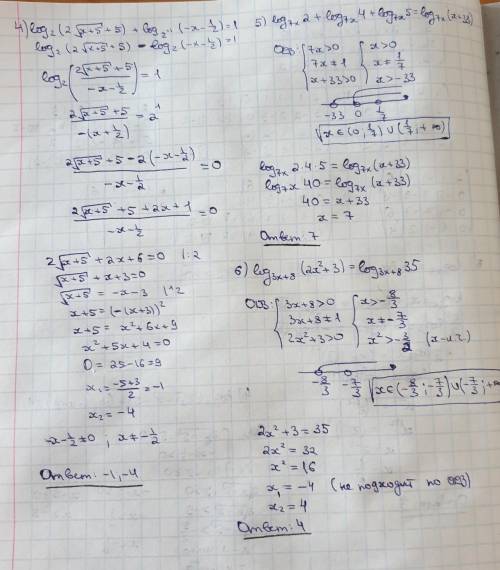 4) log₂(2√(x+5)+5) + log₂₋₁(-x-½)=1
log₂(2√(x+5)+5) - log₂(-x-½)=1
log₂((2√(x+5)+5)/(-x-½)) = 1
(2√(x+5)+5)/(-(x+½)) = 2¹
(2√(x+5)+5-2(-x-½))/(-x-½) = 0
(2√(x+5)+5+2x+1)/(-x-½) = 0
2√(x+5)+2x+6=0 |:2
√(x+5)+x+3=0
√(x+5) = -x-3 |^2
x+5=(-(x+3))²
x+5 = x²+6x+9
x²+5x+4=0
D = 25-16=9
x₁ = (-5+3)/2 = -1
x₂ = -4
-x-½≠0 ; x≠-½
Ответ: -1, -4
5) log₇ₓ2+log₇ₓ4+log₇ₓ5=log₇ₓ(x+33)
ОДЗ: { 7x>0 { x>0
7x≠1 x≠1/7
x+33>0 x>-33
-33 0 1/7
x∈(0; 1/7)∪(1/7; +∞)
log₇ₓ2·4·5 = log₇ₓ(x+33)
log₇ₓ40=log₇ₓ(x+33)
40 = x+33
x = 7
Ответ: 7
6) log₃ₓ₊₈(2x²+3)=log₃ₓ₊₈35
ОДЗ: { 3x+8>0 { x>-8/3
3x+8≠1 x≠-7/3
2x²+3>0 x²>-3/2 (x-л.ч.)
-8/3 -7/3 x∈(-8/3; -7/3)∪(-7/3; +∞
2x²+3=35
2x²=32
x²=16
x₁=-4 (не подходит по ОДЗ)
x₂=4
Ответ: 4